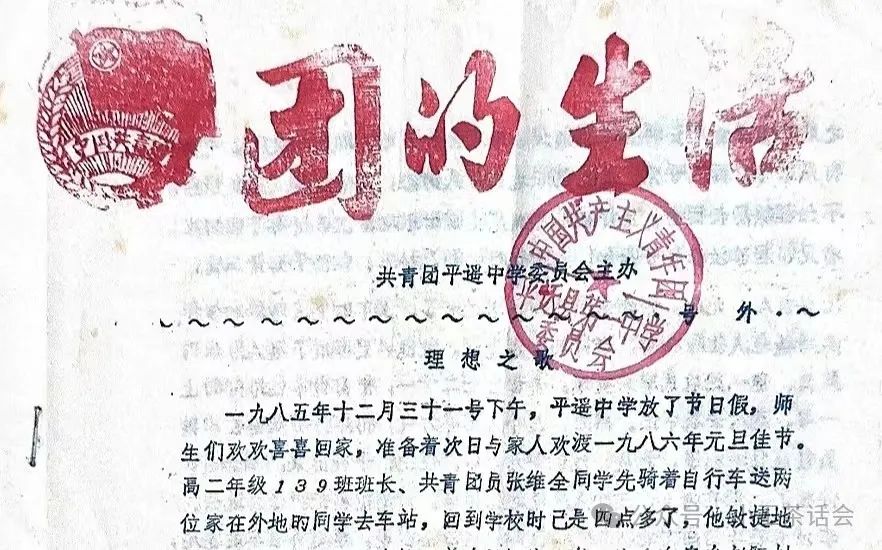 团的生活
中国共青团
共青团平遥中学委员会主办
中国共产主义青年团
平遥县第一中学
委员会
号外
理想之歌
一九八五年十二月三十一号下午，平遥中学放了节日假，师
生们欢欢喜喜回家，准备着次日与家人欢渡一九八六年元旦佳节。
高二年级139班班长、共青团员张维全同学先骑着自行车送两
位家在外地的同学去车站，回到学校时已是四点多了，他敏捷地
公众号
茶话会